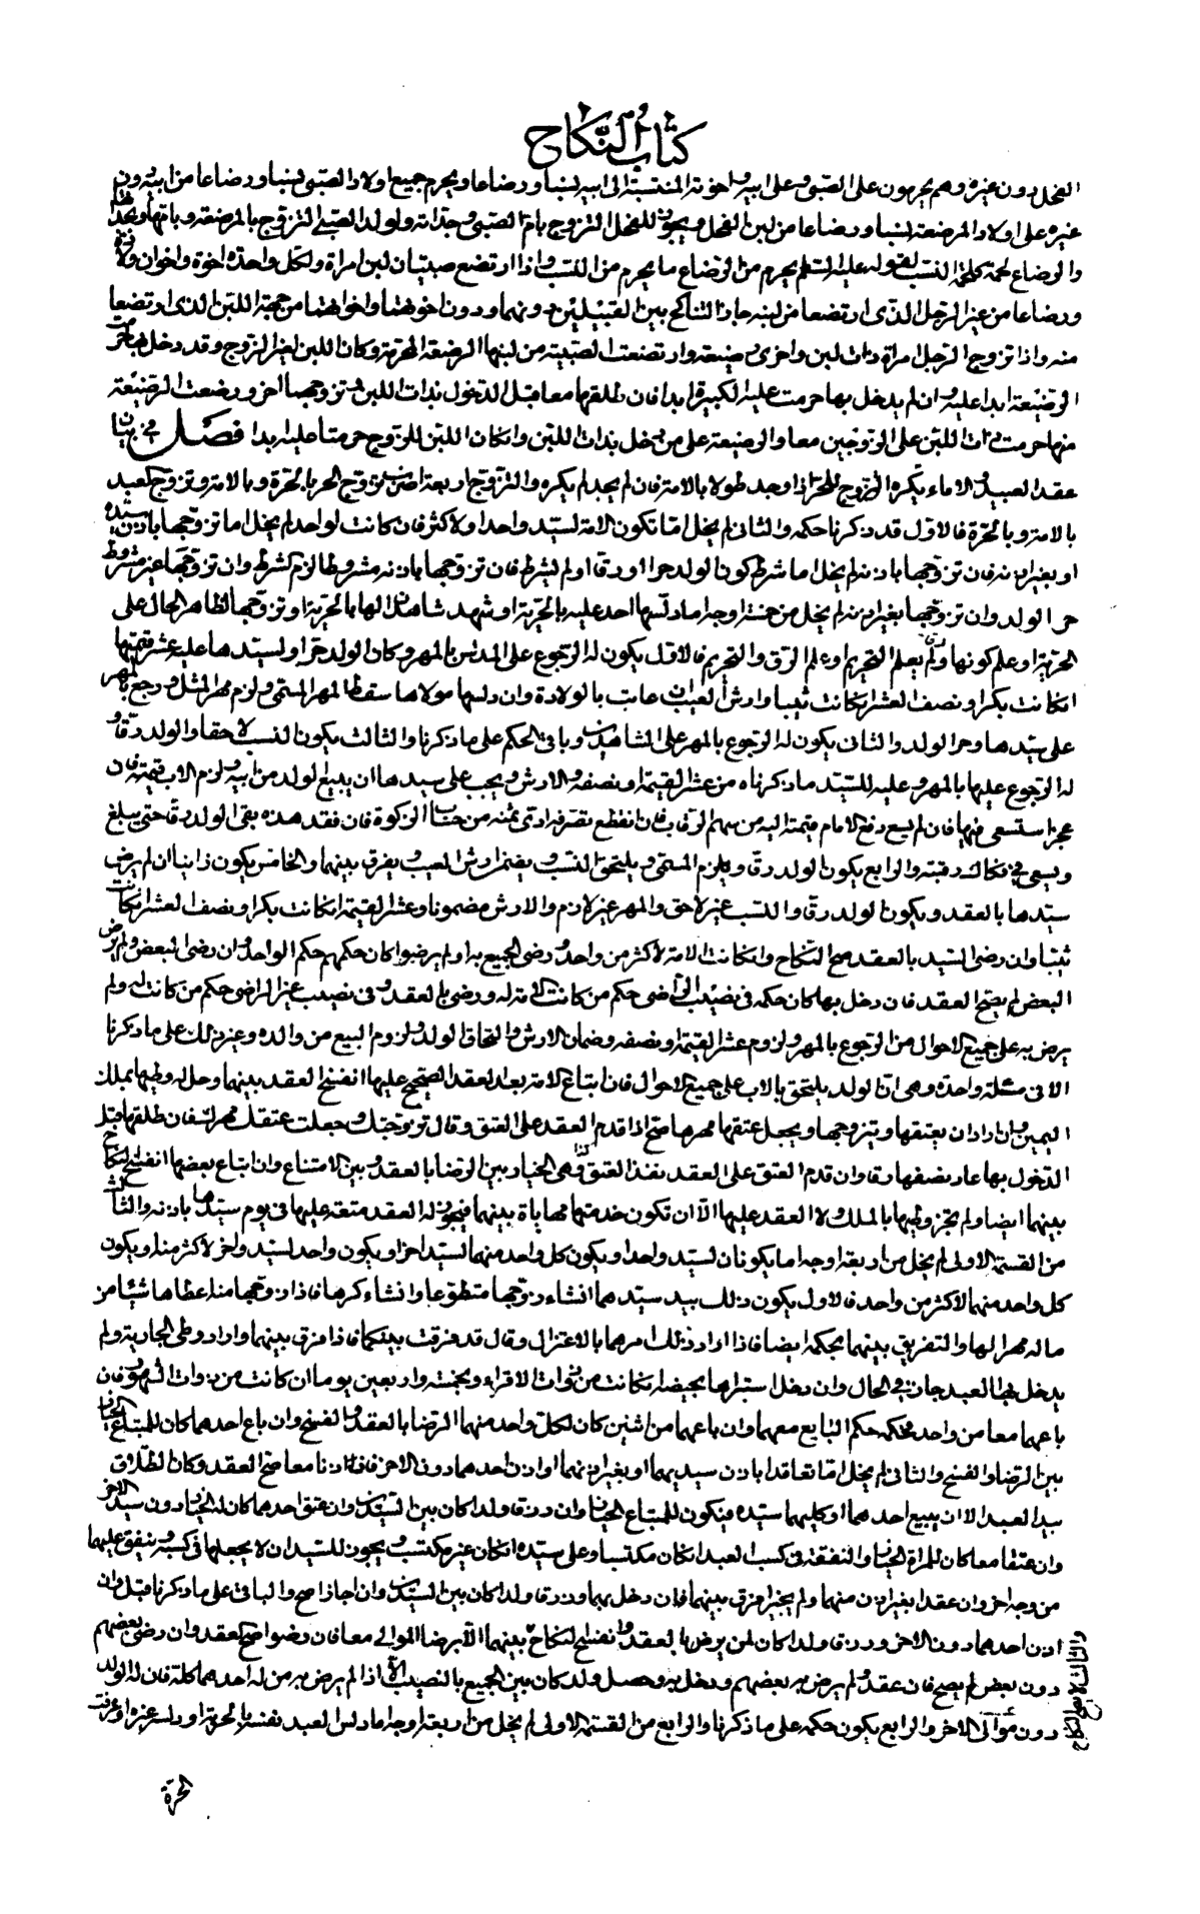 كتاب النكاح
الفحل دون غيره وهم يحرمون على الصبي وعلى ابيه واخوته المنتسبة الى ابيه نسبا ورضاعا ويحرم جميع اولاد الصبي نسبا ورضاعا من ابيه دون
غيره على اولاد المرضعة نسبا ورضاعا من لبن الفحل ويجوز للفحل التزوج بام الصبي وجداته ولوالد الصبي التزوج بالمرضعة وبامها وبجداتها
والرضاع لحمة كلحمة النسب لقوله عليه السلم يحرم من الرضاع ما يحرم من النسب واذا ارتضع صبيان لبن امراة ولكل واحد اخوة واخوات ولادة
ورضاعا من غير الرجل الذي ارتضعا من لبنه جاز التناكح بين القبيلين دونهما ودون اخوتهما واخواتهما من جهة اللبن الذي ارتضعا
منه واذا تزوج الرجل امراة ذات لبن واخرى رضيعة وارتضعت الصبية من لبنها الرضعة المحرمة وكان اللبن لغير الزوج وقد دخل بها حرمت
الرضيعة ابدا عليه وان لم يدخل بها حرمت عليه الكبيرة ابدا فان طلقها معا قبل الدخول بذات اللبن ثم تزوجها اخر ورضعت الرضيعة
منها حرمت ذات اللبن على الزوجين معا والرضيعة على من دخل بذات اللبن وان كان اللبن للزوج حرمتا عليه ابدا فصل في بيان
عقد العبيد والاماء يكره التزوج للحر اذا وجد طولا بالامة فان لم يجد لم يكره والتزوج اربعة اضرب تزوج الحر بالحرة وبالامة وتزوج العبد
بالامة وبالحرة فالاول قد ذكرنا حكمه والثاني لم يخل اما تكون الامة لسيد واحد او لاكثر فان كانت لواحد لم يخل اما تزوجها باذن سيده
او بغير اذنه فان تزوجها باذنه لم يخل اما شرط كون الولد حرا او رقا او لم يشرط فان تزوجها باذنه مشروطا لزم الشرط وان تزوجها غير مشروط
حر الولد وان تزوجها بغير اذنه لم يخل من خمسة اوجه اما دلسها احد عليه بالحرية او شهد شاهدان لها بالحرية او تزوجها لظاهر الحال على
الحرية او علم كونها رقا ولم يعلم التحريم او علم الرق والتحريم فالاول يكون له الرجوع على المدلس بالمهر وكان الولد حرا ولسيدها عليه عشر قيمتها
ان كانت بكرا ونصف العشر ان كانت ثيبا وارش العيب ان عابت بالولادة وان دلسها مولاها سقط المهر المسمى ولزم مهر المثل ورجع بالمهر
على سيدها وحر الولد والثاني يكون له الرجوع بالمهر على الشاهدين وباقي الحكم على ما ذكرنا والثالث يكون النسب لاحقا والولد رقا و
له الرجوع عليها بالمهر وعليه للسيد ما ذكرناه من عشر القيمة او نصفه والارش ويجب على سيدها ان يبيع الولد من ابيه ولزم الاب قيمته فان
عجز استسعى فيها فان لم يسع دفع الامام قيمته اليه من سهم الرقاب فان انقطع تصرفه ادى ثمنه من حساب الزكوة فان فقد هذه بقى الولد رقا حتى يبلغ
ويسعى في فكاك رقبته والرابع يكون الولد رقا ويلزم المسمى ويلتحق النسب ويضمن ارش العيب ويفرق بينهما والخامس يكون زانيا ان لم يرض
سيدها بالعقد ويكون الولد رقا والنسب غير لاحق والمهر غير لازم والارش مضمونا وعشر القيمة ان كانت بكرا ونصف العشر ان كانت
ثيبا وان رضى السيد بالعقد صح النكاح وان كانت الامة لاكثر من واحد ورضى الجميع به او لم يرضوا كان حكمهم حكم الواحد وان رضى البعض ولم يرض
البعض لم يصح العقد فان دخل بها كان حكمه في نصيب الراضى حكم من كانت الامة له ورضى بالعقد وفي نصيب غير الراضى حكم من كانت له ولم
يرض به على جميع الاحوال من الرجوع بالمهر ولزوم عشر القيمة او نصفه وضمان الارش والتحاق الولد ولزوم البيع من والده وغير ذلك على ما ذكرنا
الا في مسئلة واحدة وهى ان الولد يلتحق بالاب على جميع الاحوال فان ابتاع الامة بعد العقد الصحيح عليها انفسخ العقد بينهما وحل له وطيها بملك
اليمين وان اراد ان يعتقها ويتزوجها ويجعل عتقها مهرها صح اذا قدم العقد على العتق وقال تزوجتك وجعلت عتقك مهرك فان طلقها قبل
الدخول بها عاد نصفها رقا وان قدم العتق على العقد نفذ العتق وهى الخيار بين الرضا بالعقد وبين الامتناع وان ابتاع بعضها انفسخ النكاح
بينهما ايضا ولم يجز وطيها بالملك ولا العقد عليها الا ان تكون خدمتها مهاياة بينهما فيجوز له العقد متعة عليها في يوم سيدها باذنه والثالث
من القسمة الاولى لم يخل من اربعة اوجه اما يكونان لسيد واحد او يكون كل واحد منهما لسيد اخر او يكون واحد لسيد واخر لاكثر منه او يكون
كل واحد منهما لاكثر من واحد فالاول يكون ذلك بيد سيدهما ان شاء زوجها متطوعا وان شاء كرها فاذا زوجها منه اعطاها شيئا من
ماله مهرا لها والتفريق بينهما بحكمه ايضا فاذا اراد ذلك امرهما بالاعتزال وقال قد فرقت بينكما فاذا فرق بينهما واراد وطى الجارية ولم
يدخل بها العبد جاز في الحال وان دخل استبراها بحيضة ان كانت من ذوات الاقراء وبخمسة واربعين يوما ان كانت من ذوات الشهور فان
باعهما معا من واحد فحكمه حكم البايع معهما وان باعهما من اثنين كان لكل واحد منهما الرضا بالعقد والفسخ وان باع احدهما كان للمبتاع الخيار
بين الرضا والفسخ والثاني لم يخل اما تعاقدا باذن سيديهما او بغير اذنهما او اذن احدهما دون الاخر فاذا اذنا معا صح العقد وكان الطلاق
بيد العبد الا ان يبيع احدهما او كليهما سيده فيكون للمبتاع الخيار وان رزقا ولدا كان بين السيدين وان عتق احدهما كان له الخيار دون سيد الاخر
وان عتقا معا كان للمراة الخيار والنفقة في كسب العبد ان كان مكتسبا وعلى سيده ان كان غير مكتسب ويجوز للسيد ان لا يجعلها في كسبه وينفق عليهما
من وجه اخر وان عقدا بغير اذن منهما ولم يخبرا فرق بينهما فان دخل بها ورزقا ولدا كان بين السيدين وان اجازا صح والباقي على ما ذكرنا قبل وان
اذن احدهما دون الاخر ورزقا ولدا كان لمن لم يرض بالعقد والثالث لا يصح النكاح بينهما الا برضا الموالي معا فان رضوا صح العقد وان رضى بعضهم
دون بعض لم يصح فان عقد ولم يرض به بعضهم ودخل بها وحصل ولد كان بين الجميع بالنصيب الا اذا لم يرض به من له احدهما كله فان له الولد
دون موالى الاخر والرابع يكون حكمه على ما ذكرنا والرابع من القسمة الاولى لم يخل من اربعة اوجه اما دلس العبد نفسه بالحرية او دلسه غيره او عرفت
الحرة